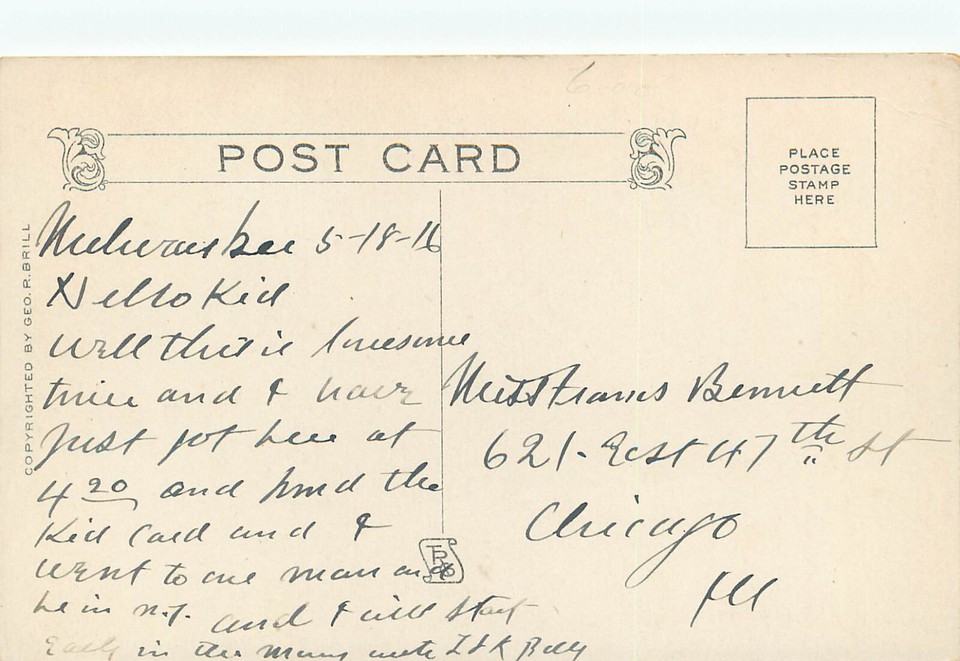 POST CARD
PLACE
POSTAGE
STAMP
HERE
COPYRIGHTED BY GEO. R. BRILL
Milwaukee 5-18-16
Hello Kid
Well this is lonesome
and I have
Just got here at
4 20 and find the
Kid Card and I
went to one man and
he in n.y. and I will start
Early in the with
Miss Francis Bennett
621- East 47 th St
Chicago
Ill